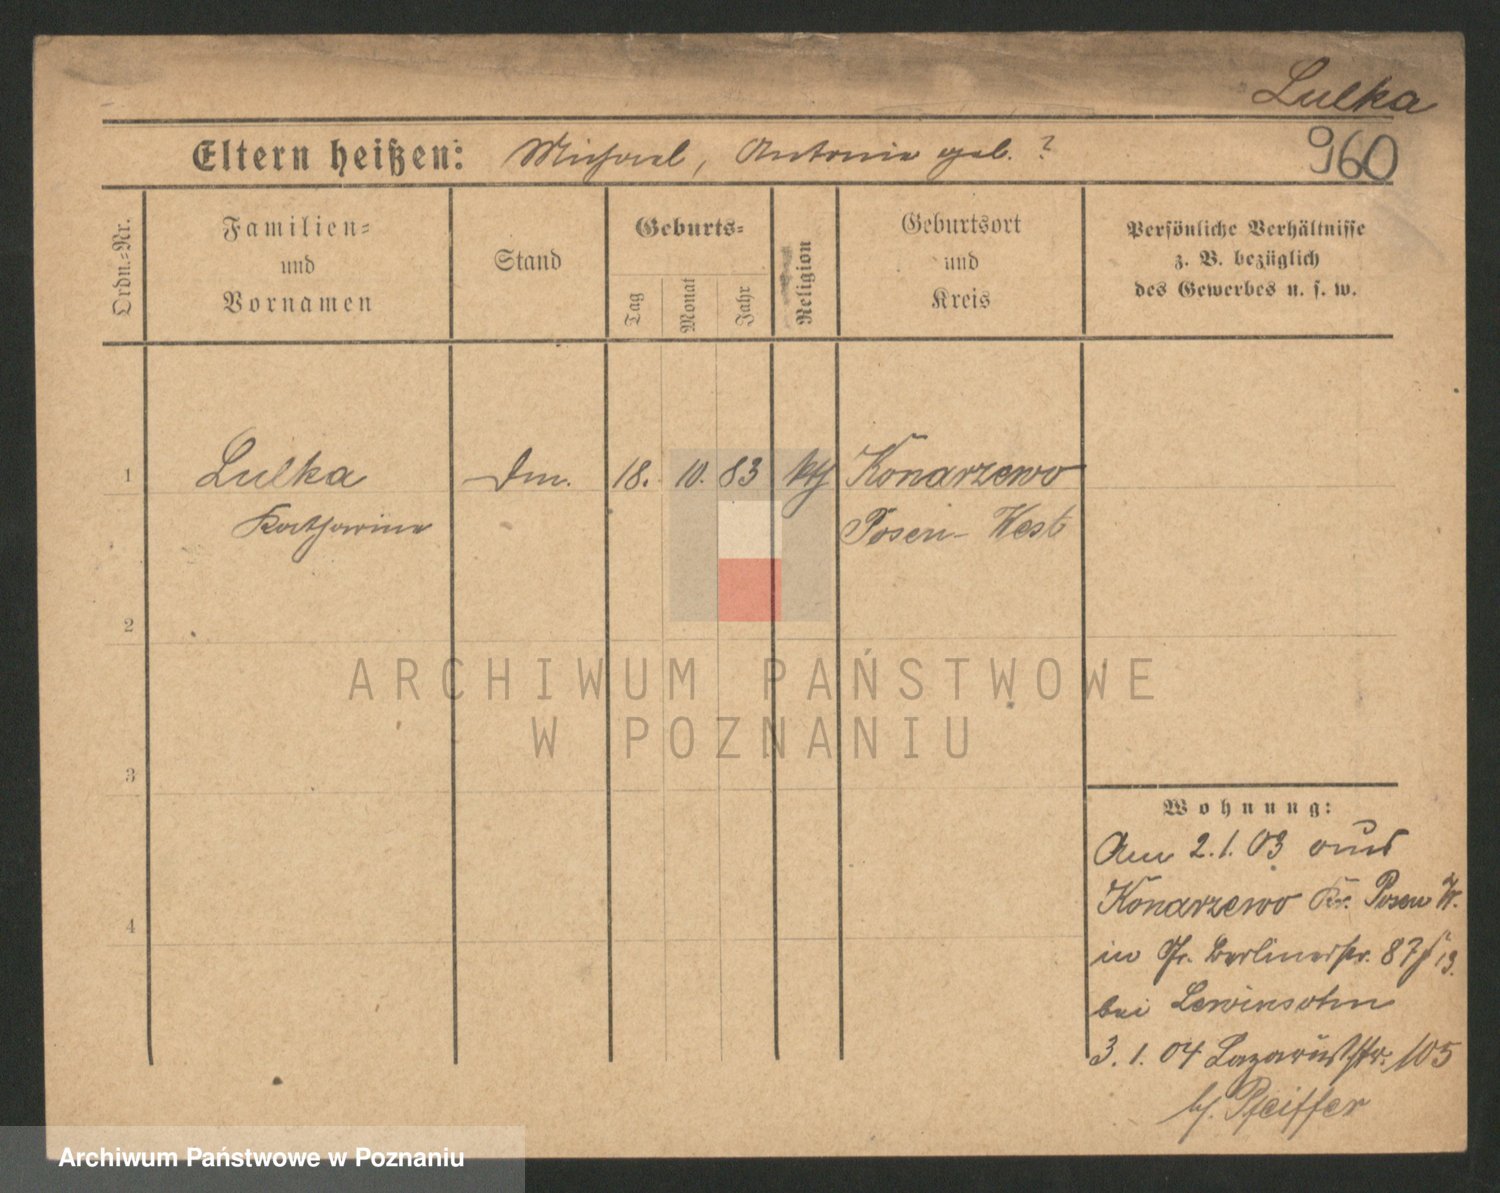 Lulka
960
Eltern heißen: Michael, Antonie geb. ?
Ordn.-Nr.
Familien-
und
Vornamen
Stand
Geburts-
Tag
Monat
Jahr
Religion
Geburtsort
und
Kreis
Persönliche Verhältnisse
z. B. bezüglich
des Gewerbes u. s. w.
1 Lulka 18. 10. 83 kth Konarzewo
Katharina Posen-West
2
ARCHIWUM PAŃSTWOWE
W POZNANIU
3
Wohnung:
Am 2.1.03 aus
Konarzewo Kr. Posen W.
4
in Berlinerstr. 87
bei Lewinsohn
3.1.04 Lazarusstr. 105
b/. Pfeiffer
Archiwum Państwowe w Poznaniu